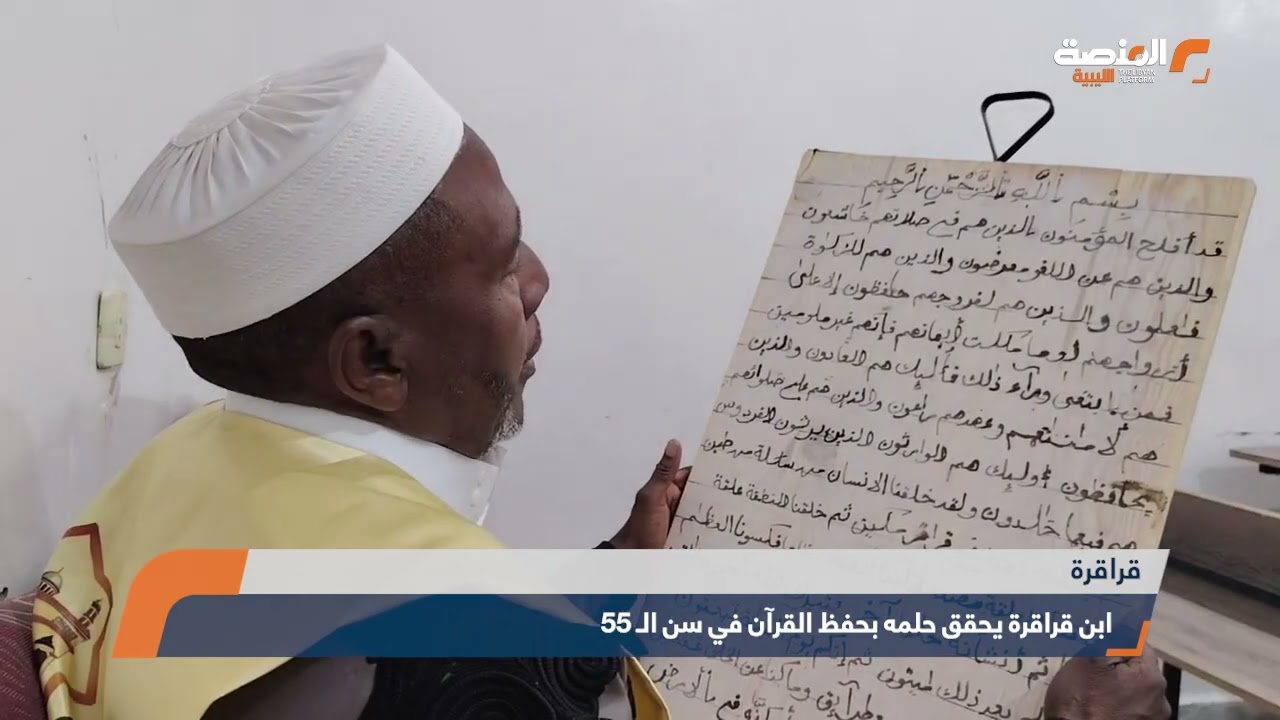 المنصة
الليبية
THE LIBYAN
PLATFORM
بِسْمِ اللَّهِ الرَّحْمَٰنِ الرَّحِيمِ
قد أفلح المؤمنون الذين هم في صلاتهم خاشعون
والذين هم عن اللغو معرضون والذين هم للزكوٰة
فاعلون والذين هم لفروجهم حٰفظون إلا على
أزواجهم أو ما ملكت أيمانهم فإنهم غير ملومين
فمن ابتغى ورآء ذٰلك فأولٰئك هم العادون والذين
هم لأمٰنٰتهم وعهدهم راعون والذين هم على صلواتهم
يحافظون أولٰئك هم الوارثون الذين يرثون الفردوس
هم فيها خٰلدون ولقد خلقنا الانسان من سلٰلة من طين
قرار مكين ثم خلقنا النطفة علقة
فكسونا العظٰم
قراقرة
ابن قراقرة يحقق حلمه بحفظ القرآن في سن الـ 55
بعد ذلك لميتون ثم إنكم يوم
طرآئق وما كنا عن الخلق
في الأرض